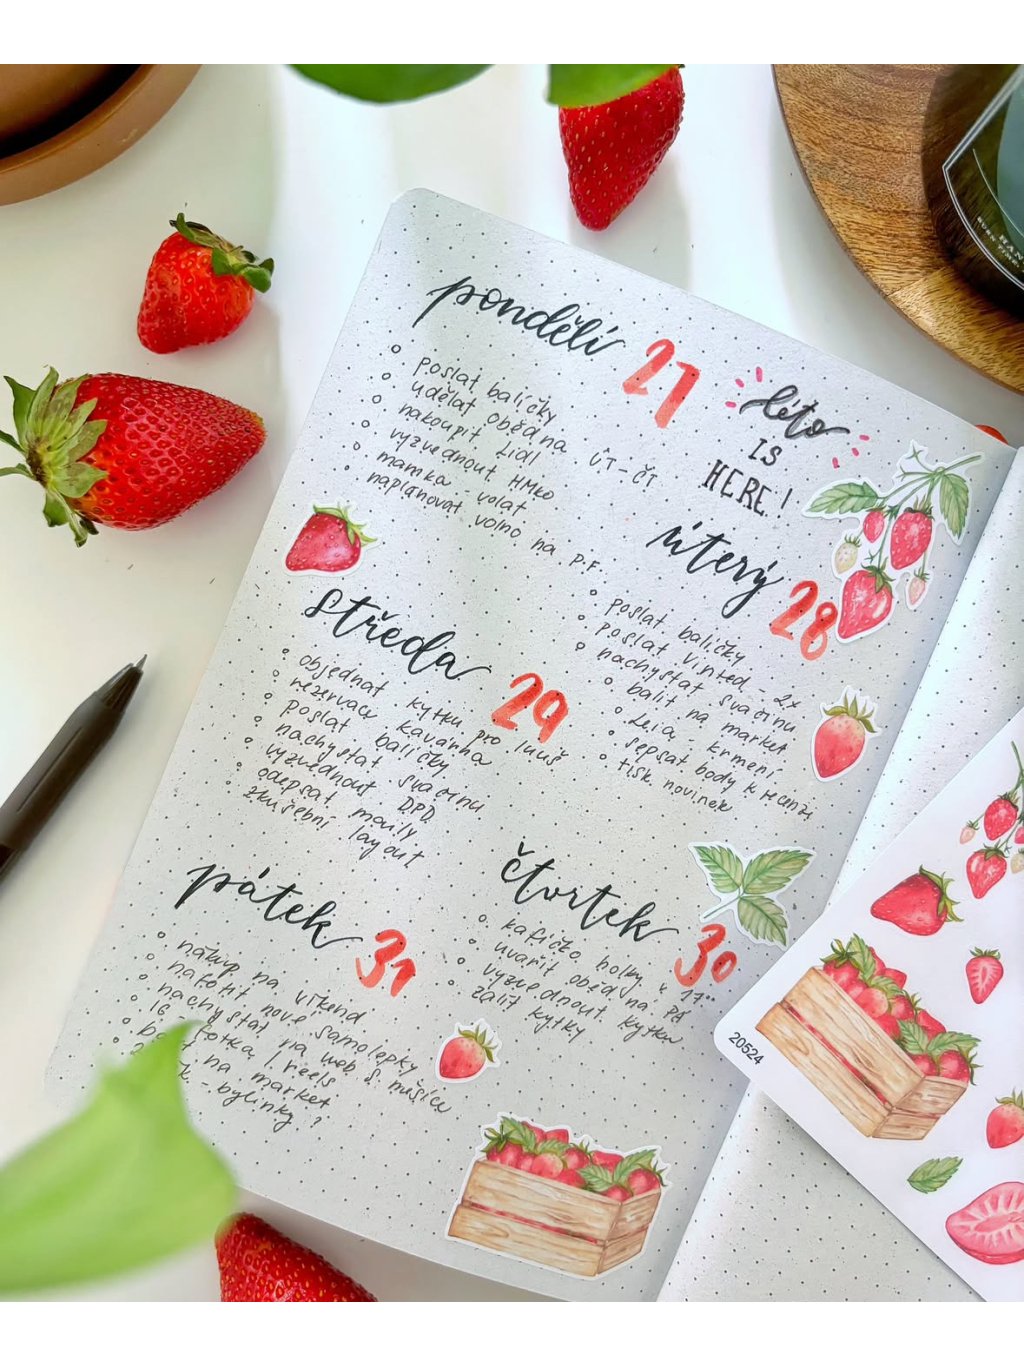 pondělí 27
poslat balíčky
udělat oběd na ÚT - ČT
nakoupit Lidl
vyzvednout HMko
mamka - volat
naplánovat volno na P.F.
léto
IS
HERE!
úterý 28
poslat balíčky
poslat Vinted - 2x
nachystat svačinu
balit na market
Leia - krmení
sepsat body k recenzi
tisk novinek
středa 29
objednat kytku pro
rezervace kavárna
poslat balíčky
nachystat svačinu
vyzvednout DPD
odepsat maily
zkušební layout
čtvrtek 30
kafíčko holky v 17⁰⁰
uvařit oběd na PÁ
vyzvednout kytku
zalít kytky
pátek 31
nákup na víkend
nafotit nové samolepky
nachystat na web 8. měsíc
IG - fotka / reels
na market
- bylinky ?
20524